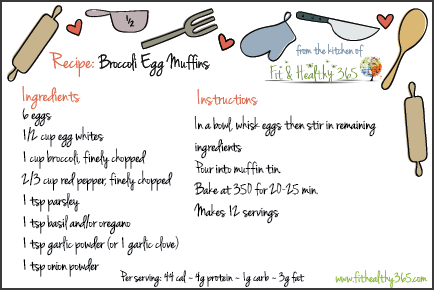 1/2
from the kitchen of
Fit & Healthy 365
Recipe: Broccoli Egg Muffins
Ingredients
6 eggs
1/2 cup egg whites
1 cup broccoli, finely chopped
2/3 cup red pepper, finely chopped
1 tsp parsley
1 tsp basil and/or oregano
1 tsp garlic powder (or 1 garlic clove)
1 tsp onion powder
Instructions
In a bowl, whisk eggs then stir in remaining
ingredients
Pour into muffin tin.
Bake at 350 for 20-25 min.
Makes 12 servings
Per serving: 44 cal - 4g protein - 1g carb - 3g fat
www.fithealthy365.com